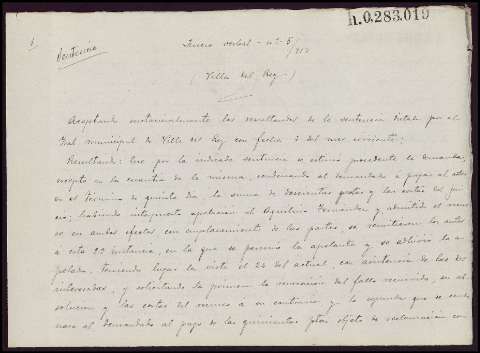 h.0.283.019
Sentencia
Juicio verbal - nº 5/912
(Villar del Rey.)
Aceptando sustancialmente los resultandos de la sentencia dictada por el
Tral municipal de Villar del Rey con fecha 3 del mes corriente;
Resultando: Que por la indicada sentencia se estimó procedente la demanda,
excepto en la cuantía de la misma, condenando al demandado á pagar al actor
en el término de quinto día, la suma de doscientas pesetas y las costas del jui-
cio; habiendo interpuesto apelación el Agustín Fernández y admitida el mis-
so en ambos efectos, con emplazamiento de las partes, se remitieron los autos
á esta 2ª instancia, en la que se personó la apelante y se adhirió la a-
pelada, teniendo lugar la vista el 24 del actual, con asistencia de los
interesados, y solicitando la primera la revocación del fallo recurrido, su ab-
solución y las costas del mismo a su contrario y la segunda que se conde-
nara al demandado al pago de las quinientas ptas objeto de reclamación con